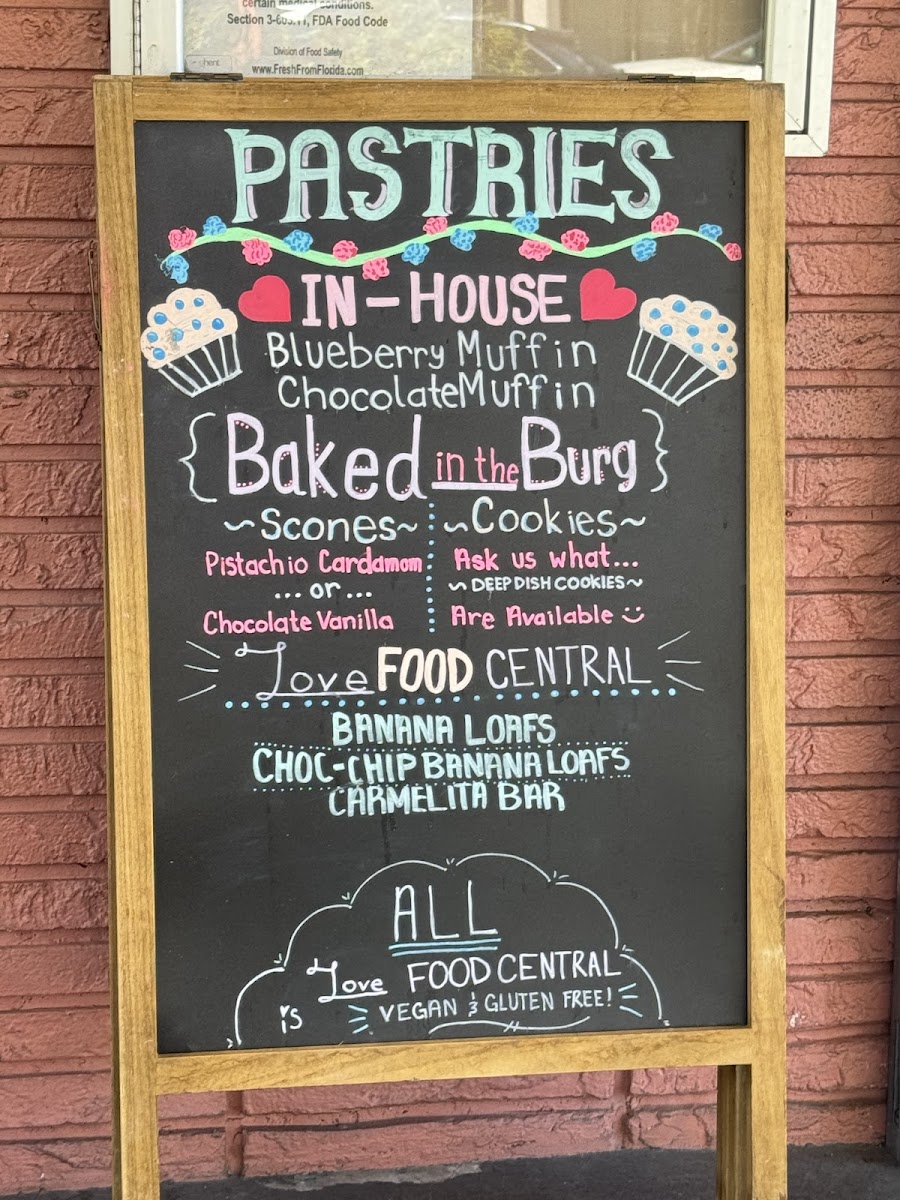 certain medical conditions.
Section 3-603.11, FDA Food Code
Division of Food Safety
www.FreshFromFlorida.com
PASTRIES
IN-HOUSE
Blueberry Muffin
Chocolate Muffin
{Baked in the Burg}
~Scones~
Pistachio Cardamom
...or...
Chocolate Vanilla
~Cookies~
Ask us what...
~DEEP DISH COOKIES~
Are Available
Love FOOD CENTRAL
BANANA LOAFS
CHOC-CHIP BANANA LOAFS
CARMELITA BAR
ALL
Love FOOD CENTRAL
is VEGAN & GLUTEN FREE!